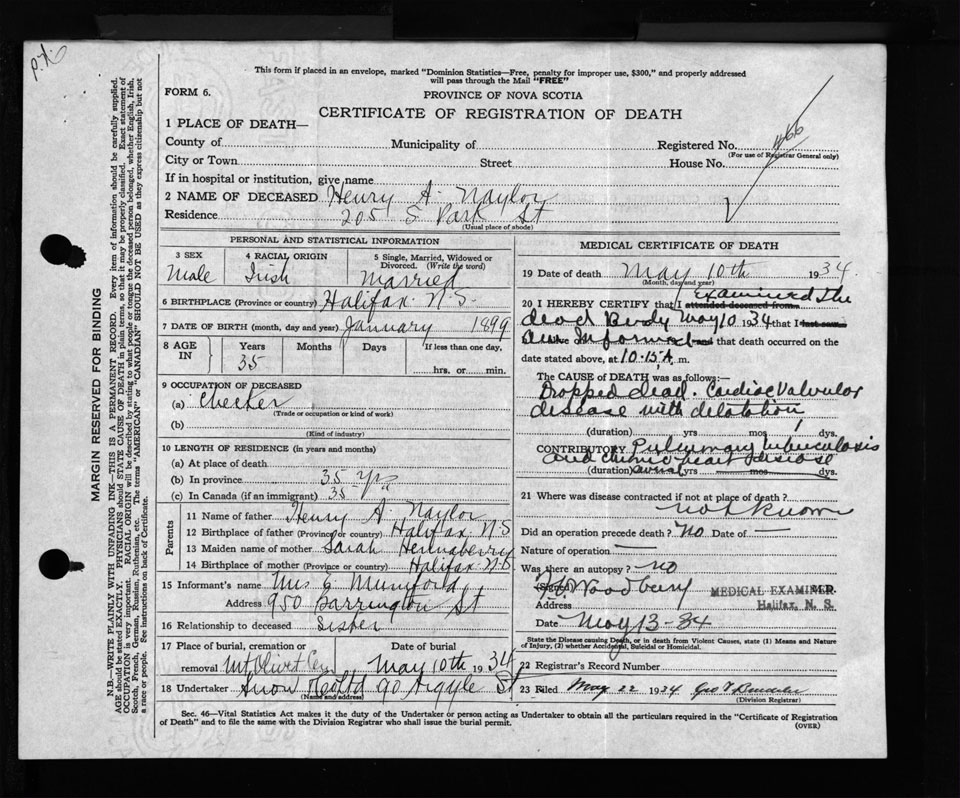 P.X.
This form if placed in an envelope, marked "Dominion Statistics—Free, penalty for improper use, $300," and properly addressed
will pass through the Mail "FREE"
FORM 6.
PROVINCE OF NOVA SCOTIA
CERTIFICATE OF REGISTRATION OF DEATH
1 PLACE OF DEATH—
County of Municipality of Registered No. 1466
(For use of Registrar General only)
City or Town Street House No.
If in hospital or institution, give name
2 NAME OF DECEASED Henry A. Naylor
Residence 205 S Park St
(Usual place of abode)
PERSONAL AND STATISTICAL INFORMATION
3 SEX 4 RACIAL ORIGIN 5 Single, Married, Widowed or
Divorced. (Write the word)
Male Irish Married
6 BIRTHPLACE (Province or country) Halifax N.S.
7 DATE OF BIRTH (month, day and year) January 1899
8 AGE IN Years Months Days If less than one day,
35 hrs. or min.
9 OCCUPATION OF DECEASED
(a) Checker
(Trade or occupation or kind of work)
(b)
(Kind of industry)
10 LENGTH OF RESIDENCE (in years and months)
(a) At place of death
(b) In province 35 yrs
(c) In Canada (if an immigrant) 35
Parents
11 Name of father Henry A Naylor
12 Birthplace of father (Province or country) Halifax N.S
13 Maiden name of mother Sarah Henneberry
14 Birthplace of mother (Province or country) Halifax N.S
15 Informant's name Mrs E Mumford
Address 950 Barrington St
16 Relationship to deceased Sister
17 Place of burial, cremation or Date of burial
removal Mt Olivet Cem May 10th 1934
18 Undertaker Snow & Co Ltd 90 Argyle St
(Name and address)
MEDICAL CERTIFICATE OF DEATH
19 Date of death May 10th 1934
(Month, day and year)
20 I HEREBY CERTIFY that I attended deceased from examined the
dead Body May 10 1934 that I last saw
am Informed and that death occurred on the
date stated above, at 10.15 A m.
The CAUSE OF DEATH was as follows:—
Dropped dead. Cardiac Valvular
disease with dilatation
(duration) yrs mos dys.
CONTRIBUTORY Pulmonary tuberculosis
and chronic heart disease
(duration) several yrs mos dys.
21 Where was disease contracted if not at place of death?
not known
Did an operation precede death? No Date of —
Nature of operation —
Was there an autopsy? no
(Signed) Woodbury MEDICAL EXAMINER.
Address Halifax, N. S.
Date May 13-34
State the Disease causing Death, or in death from Violent Causes, state (1) Means and Nature
of Injury, (2) whether Accidental, Suicidal or Homicidal.
22 Registrar's Record Number
23 Filed May 22 1934 Geo
(Division Registrar)
Sec. 46—Vital Statistics Act makes it the duty of the Undertaker or person acting as Undertaker to obtain all the particulars required in the "Certificate of Registration
of Death" and to file the same with the Division Registrar who shall issue the burial permit. (OVER)
MARGIN RESERVED FOR BINDING
N.B.—WRITE PLAINLY WITH UNFADING INK—THIS IS A PERMANENT RECORD. Every item of information should be carefully supplied.
AGE should be stated EXACTLY. PHYSICIANS should STATE CAUSE OF DEATH in plain terms, so that it may be properly classified. Exact statement of
OCCUPATION is very important. RACIAL ORIGIN will be described by stating to what people or tongue the deceased person belonged, whether English, Irish,
Scotch, French, German, Russian, Ruthenian, etc. The terms "AMERICAN" or "CANADIAN" SHOULD NOT BE USED as they express citizenship but not
a race or people. See instructions on back of Certificate.